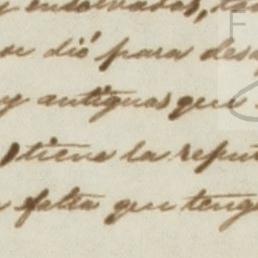 y ensolvados, te
se dió para des
y antiguas que
tiene la repu
falta que teng